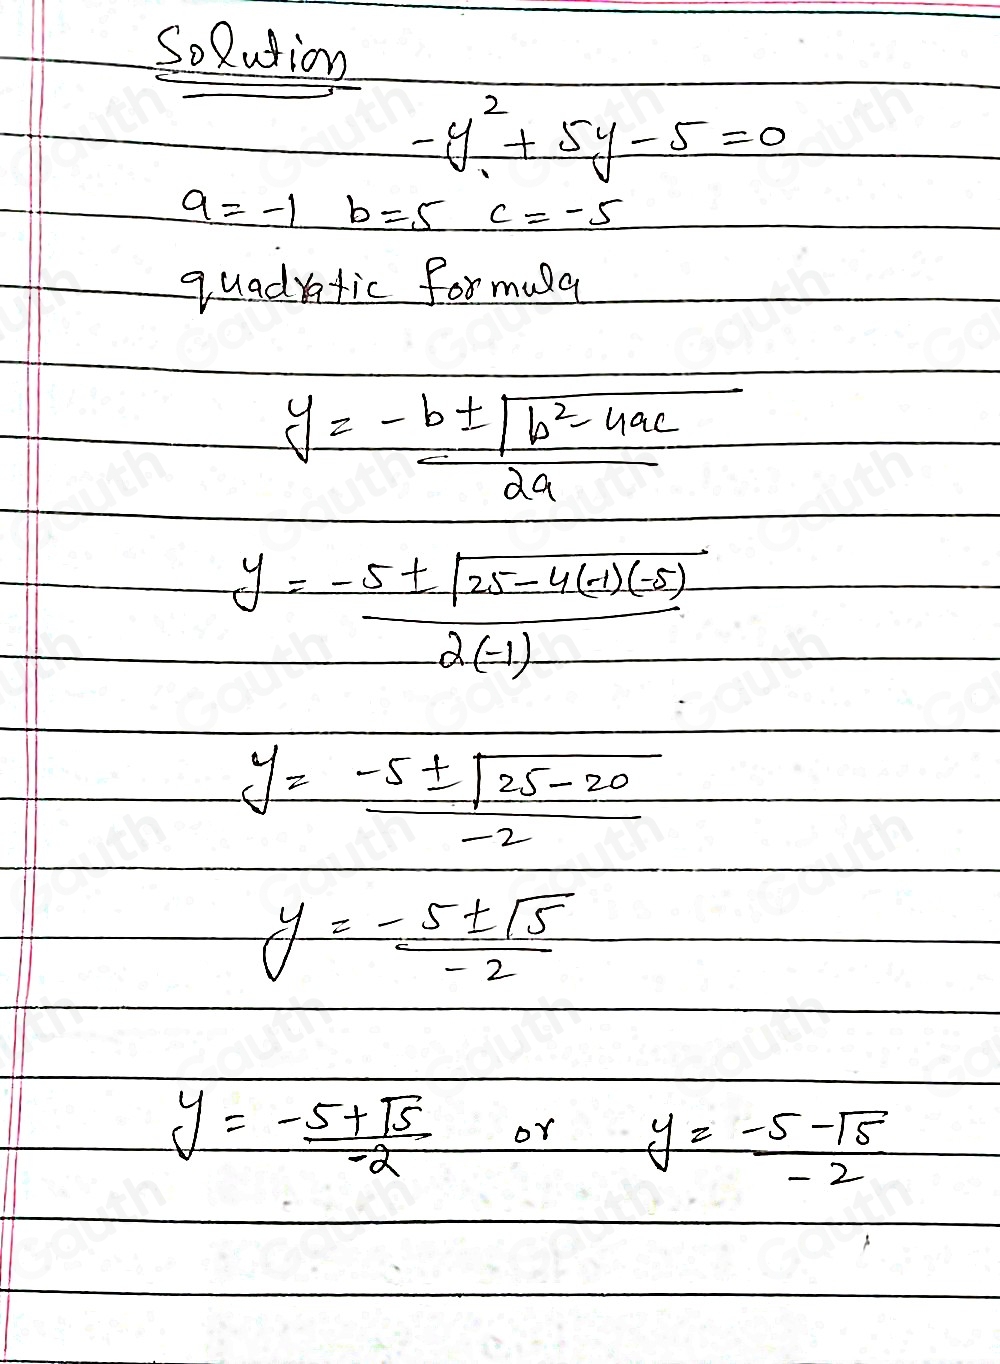 Solution
-y² + 5y - 5 = 0
a = -1 b = 5 c = -5
quadratic formula
y = -b ± √(b² - 4ac) / 2a
y = -5 ± √(25 - 4(-1)(-5)) / 2(-1)
y = -5 ± √(25 - 20) / -2
y = -5 ± √5 / -2
y = -5 + √5 / -2 or y = -5 - √5 / -2
Gauth